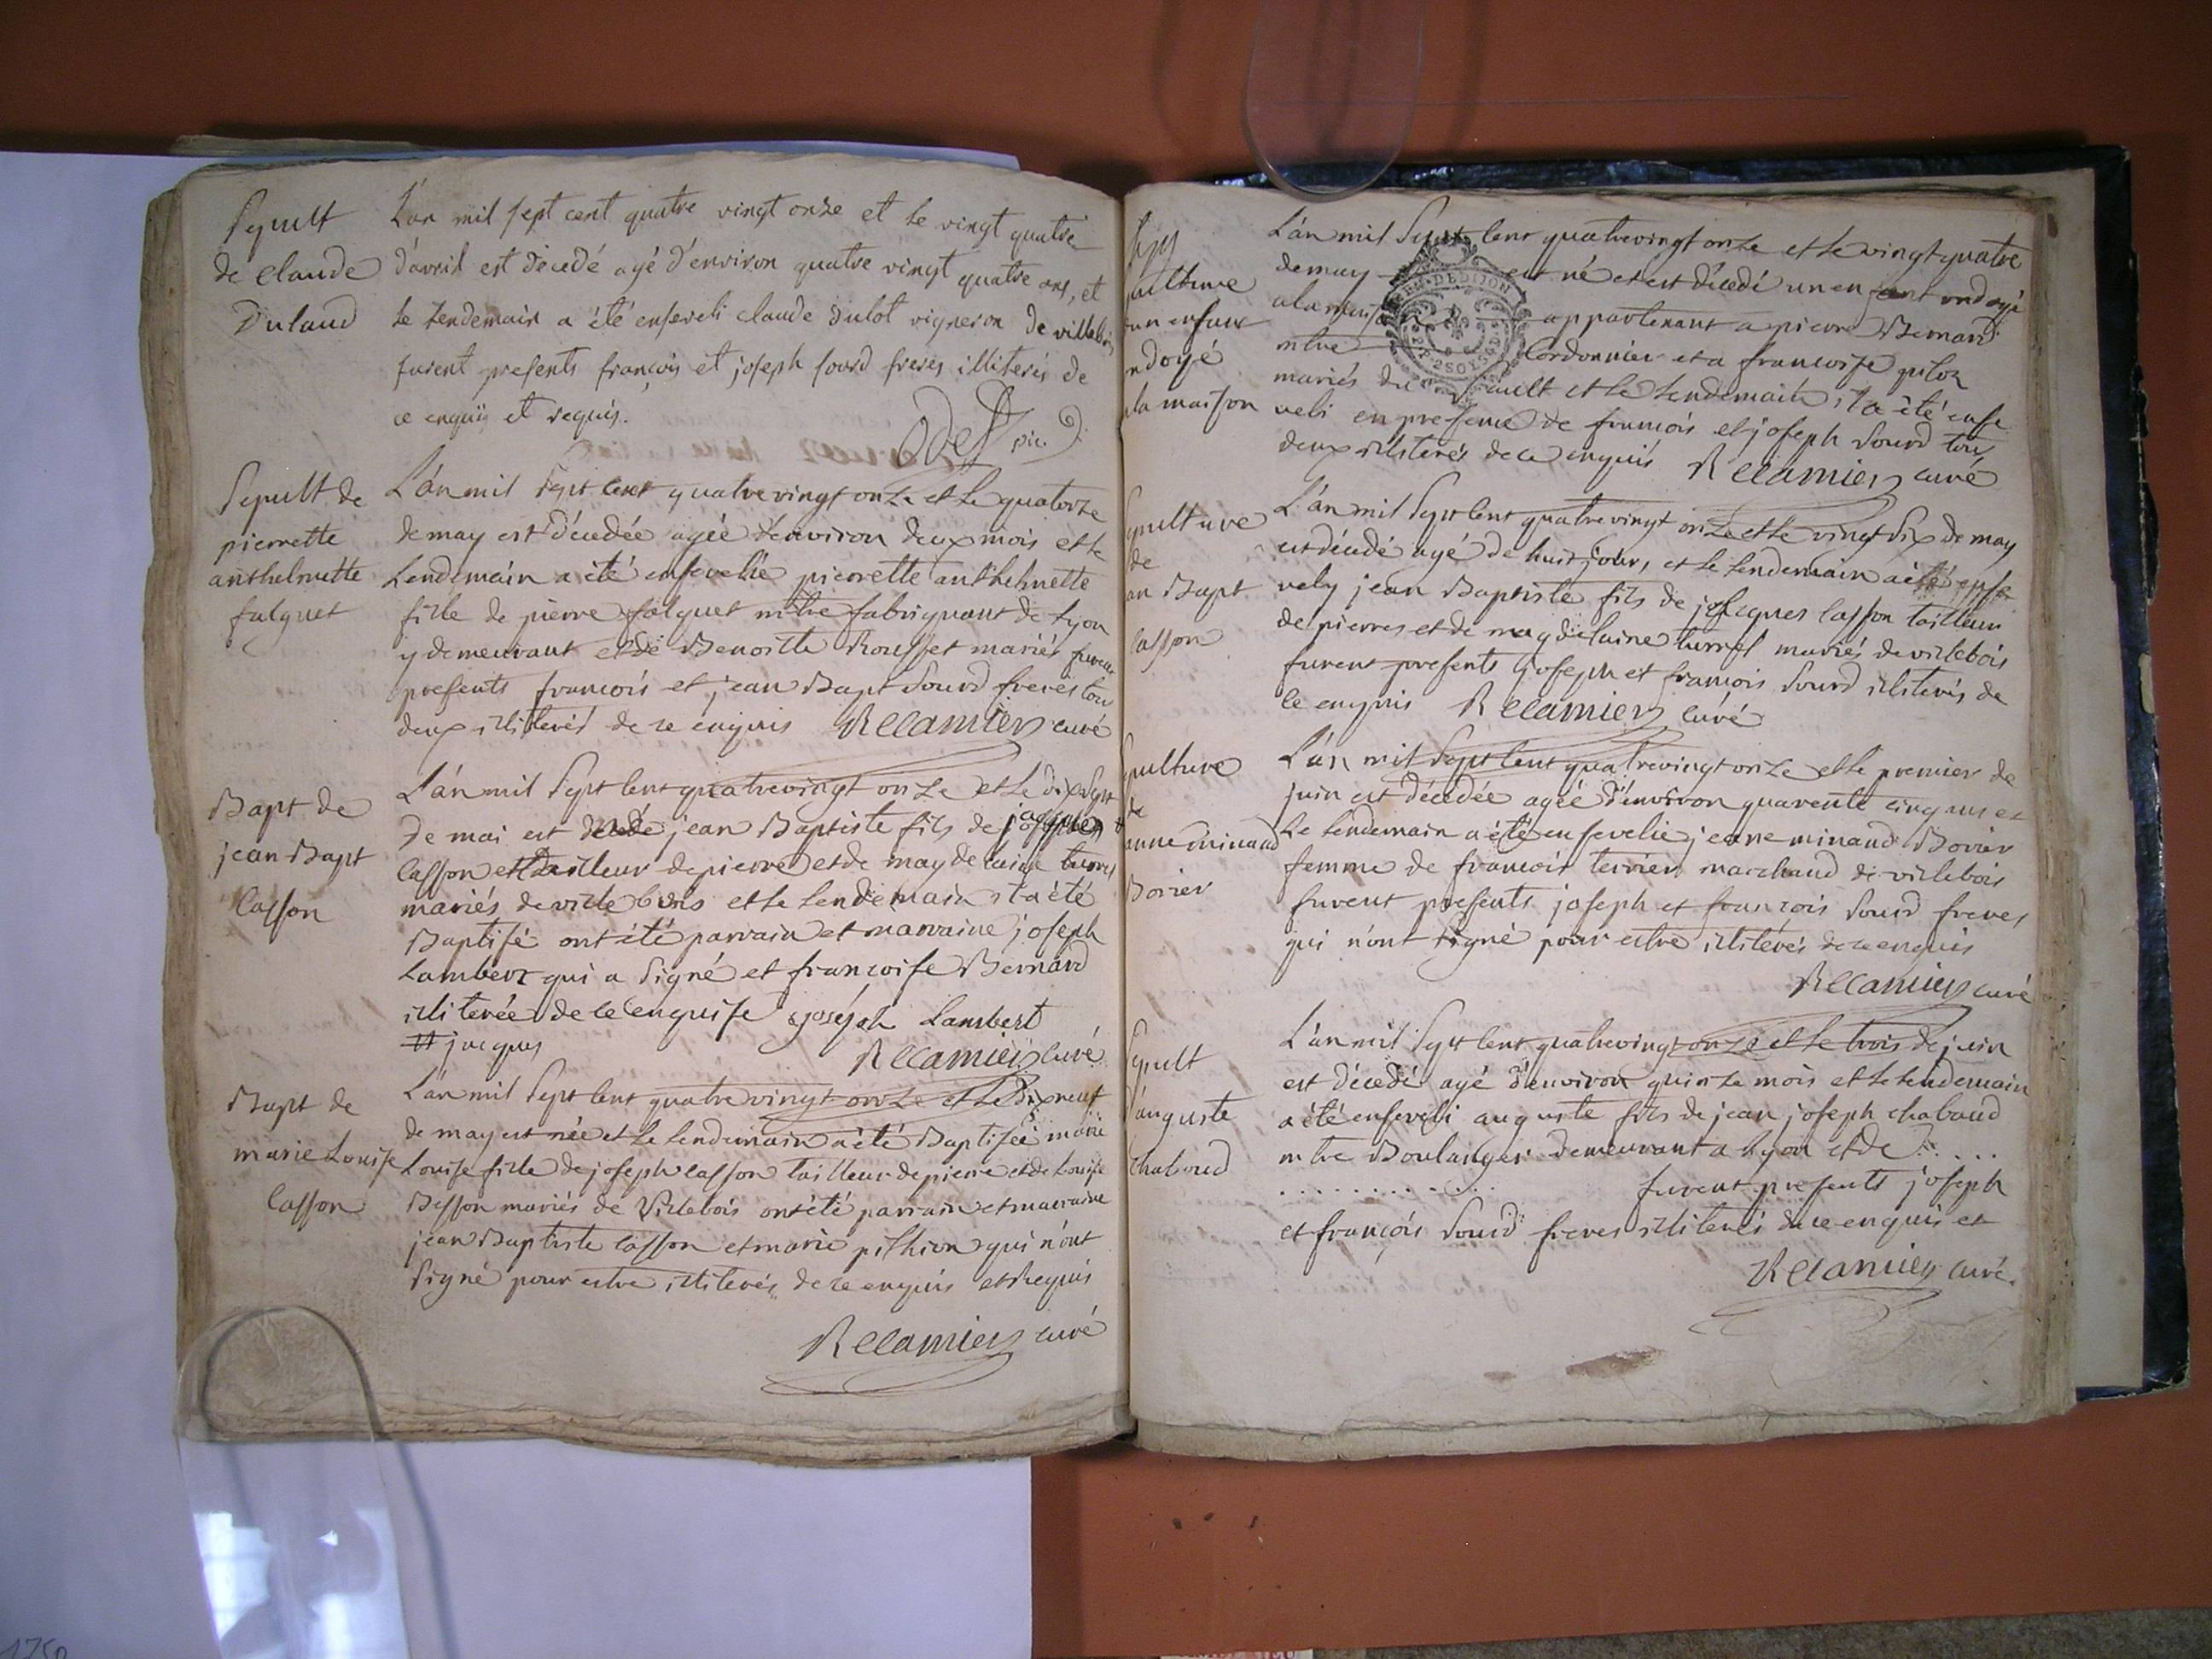 Sepult
de claude
Dulaud
L'an mil sept cent quatre vingt onze et le vingt quatre
d'avril est décedé agé d'environ quatre vingt quatre ans, et
le lendemain a été enseveli claude dulot vigneron de villebois
furent presents françois et joseph sourd freres illiterés de
ce enquis et requis.
Sepult de
pierrette
anthelmette
falquet
L'an mil sept cent quatre vingt onze et le quatorze
de may est décedée agée d'environ deux mois et le
lendemain a été ensevelie pierrette anthelmette
fille de pierre falquet mtre fabriquant de lyon
y demeurant et de Benoitte Rousset mariés furent
presents francois et jean Bapt sourd freres tou
deux illiterés de ce enquis Recamier curé
Bapt de
jean Bapt
Casson
L'an mil sept cent quatrevingt onze et le dix sept
de mai est jean Baptiste fils de
Casson tailleur de pierre et de magdelaine turrel
mariés de ville bois et le lendemain il a été
Baptisé ont été parrain et marraine joseph
Lambert qui a signé et francoise Bernard
illiterée de ce enquise joséph Lambert
# jacques
Recamier curé
Bapt de
marie Louise
Casson
L'an mil sept cent quatre vingt onze et le dix neuf
de may est née et le lendemain a été Baptisée marie
Louise fille de joseph casson tailleur de pierre et de Louise
Besson mariés de Villebois ont été parrain et marraine
jean Baptiste casson et marie pithion qui n'ont
signé pour estre illiterés de ce enquis et requis
Recamier curé
Sep
pulture
d'un enfant
ndoyé
a la maison
L'an mil sept cent quatrevingt onze et le vingt quatre
de may est né et est décedé un enfant ondoyé
a la maison appartenant a pierre Bernard
mtre Cordonnier et a francoise
mariés du Sault et le lendemain il a été ense
veli en presence de francois et joseph Sourd tous
deux illiterés de ce enquis Recamier curé
DE DIJON
epulture
de
an Bapt
casson
L'an mil sept cent quatre vingt onze et le vingt six de may
est décedé agé de huit jours, et le lendemain a été ense
vely jean Baptiste fils de jacques casson tailleur
de pierres et de magdelaine turrel mariés de villebois
furent presents joseph et francois sourd illiterés de
ce enquis Recamier curé
epulture
de
anne minaud
Borier
L'an mil sept cent quatrevingt onze et le premier de
juin est décedée agée d'environ quarente cinq ans et
le lendemain a été ensevelie jeanne minaud Borier
femme de francois terrier marchand de villebois
furent presents joseph et francois sourd freres
qui n'ont signé pour estre illiterés de ce enquis
Recamier curé
Sepult
d'auguste
Chaboud
L'an mil sept cent quatrevingt onze et le trois de juin
est décedé agé d'environ quinze mois et le lendemain
a été enseveli auguste fils de jean joseph chaboud
mtre Boulanger demeurant a lyon et de . . . .
. . . . . . . . . . . furent presents joseph
et françois Sourd freres illiterés de ce enquis et
Recamier curé.